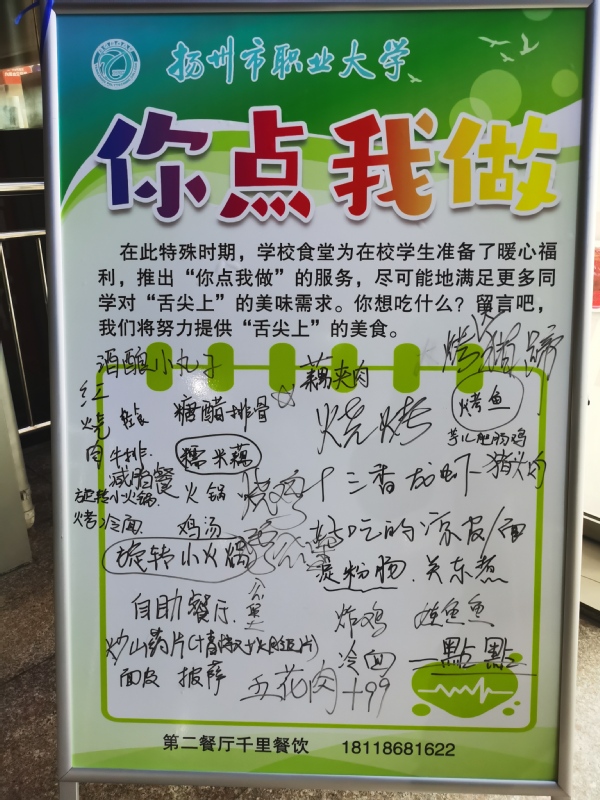 扬州市职业大学
你点我做
在此特殊时期，学校食堂为在校学生准备了暖心福
利，推出“你点我做”的服务，尽可能地满足更多同
学对“舌尖上”的美味需求。你想吃什么？留言吧，
我们将努力提供“舌尖上”的美食。
酒酿小丸子
藕夹肉
烤猪蹄
红烧肉
糖醋排骨
烧烤
烤鱼
芋儿肥肠鸡
牛排
糯米藕
减脂餐
火锅
烧鸡
十三香龙虾
猪头肉
旋转小火锅
烤冷面
鸡汤
好吃的凉皮/面
旋转小火锅
淀粉肠
关东煮
自助餐厅
炸鸡
鱼
炒山药片
冷面
點點
面皮
披萨
五花肉
+99
第二餐厅千里餐饮 18118681622